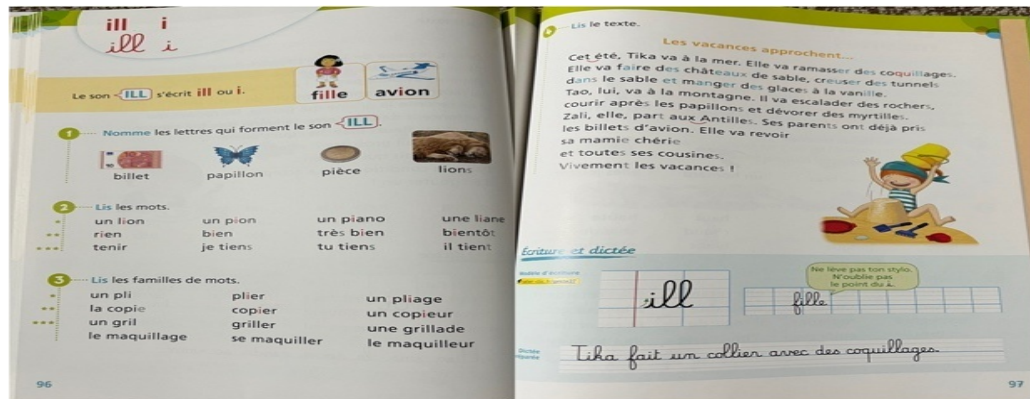 ill i
ill i
Le son ILL s'écrit ill ou i.
fille avion
1 Nomme les lettres qui forment le son ILL.
billet papillon pièce lions
2 Lis les mots.
un lion un pion un piano une liane
rien bien très bien bientôt
tenir je tiens tu tiens il tient
3 Lis les familles de mots.
un pli plier un pliage
la copie copier un copieur
un gril griller une grillade
le maquillage se maquiller le maquilleur
96
Lis le texte.
Les vacances approchent...
Cet été, Tika va à la mer. Elle va ramasser des coquillages.
Elle va faire des châteaux de sable, creuser des tunnels
dans le sable et manger des glaces à la vanille.
Tao, lui, va à la montagne. Il va escalader des rochers,
courir après les papillons et dévorer des myrtilles.
Zali, elle, part aux Antilles. Ses parents ont déjà pris
les billets d'avion. Elle va revoir
sa mamie chérie
et toutes ses cousines.
Vivement les vacances !
Écriture et dictée
Modèle d'écriture
Ne lève pas ton stylo.
N'oublie pas
le point du i.
ill fille
Dictée
préparée
Tika fait un collier avec des coquillages.
97